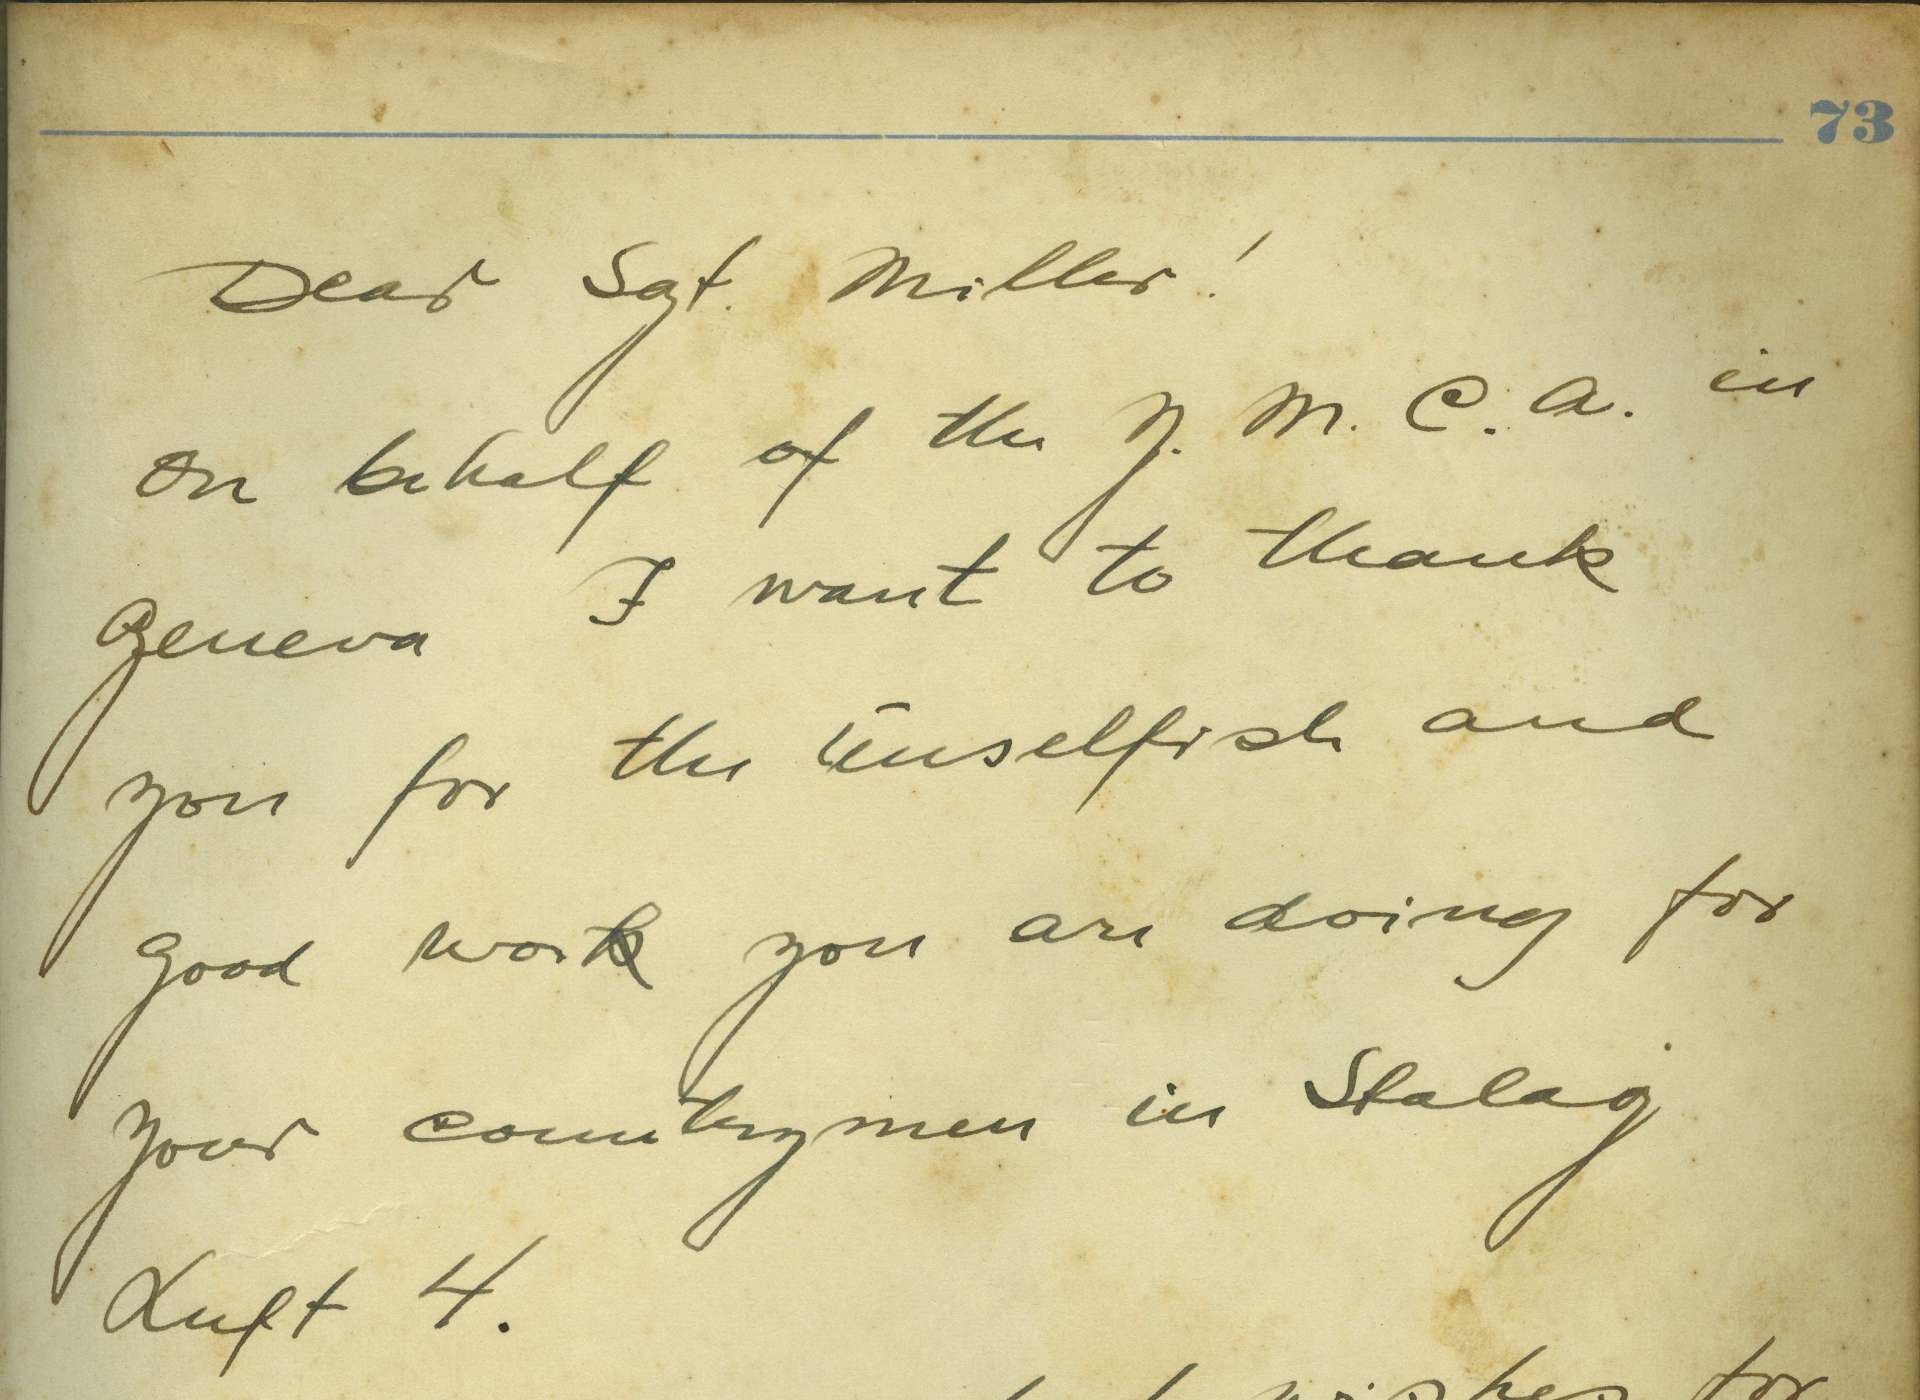 73
Dear Sgt. Miller!
On behalf of the Y. M. C. A. in
Geneva I want to thank
you for the unselfish and
good work you are doing for
your countrymen in Stalag
Luft 4.
wishes for